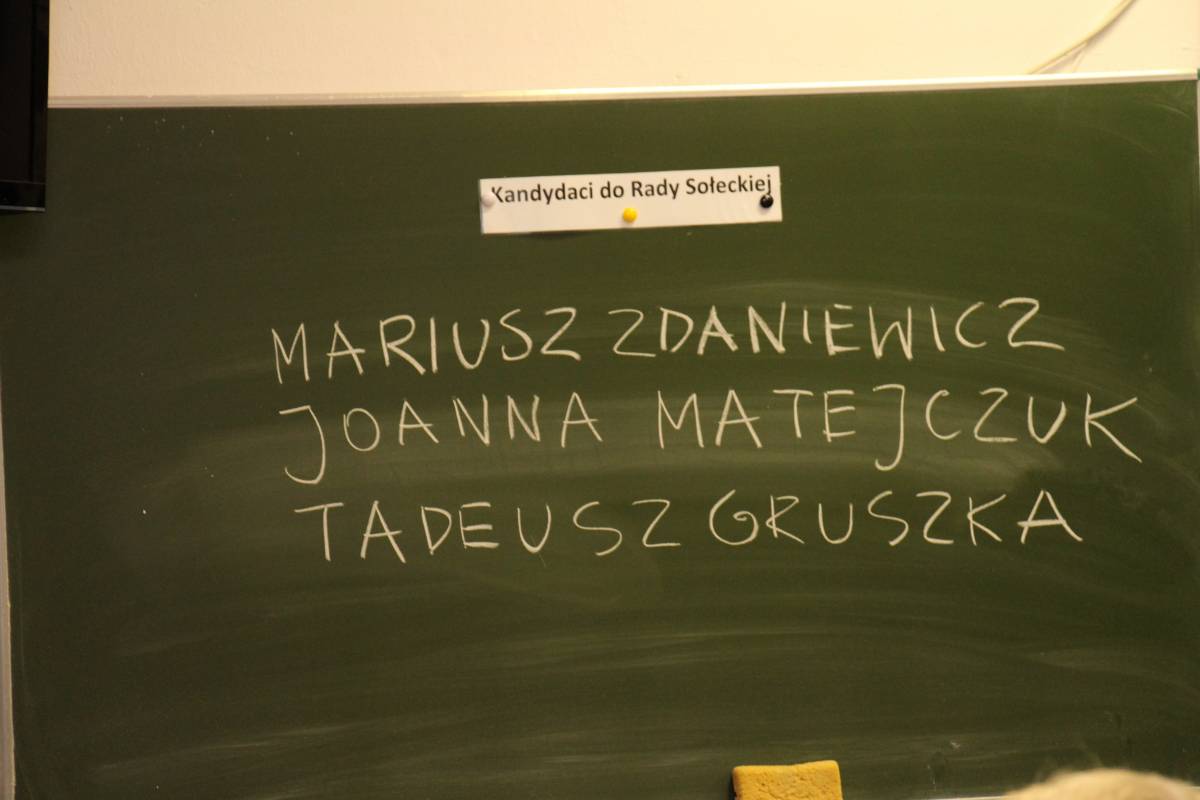 Kandydaci do Rady Sołeckiej
MARIUSZ ZDANIEWICZ
JOANNA MATEJCZUK
TADEUSZ GRUSZKA